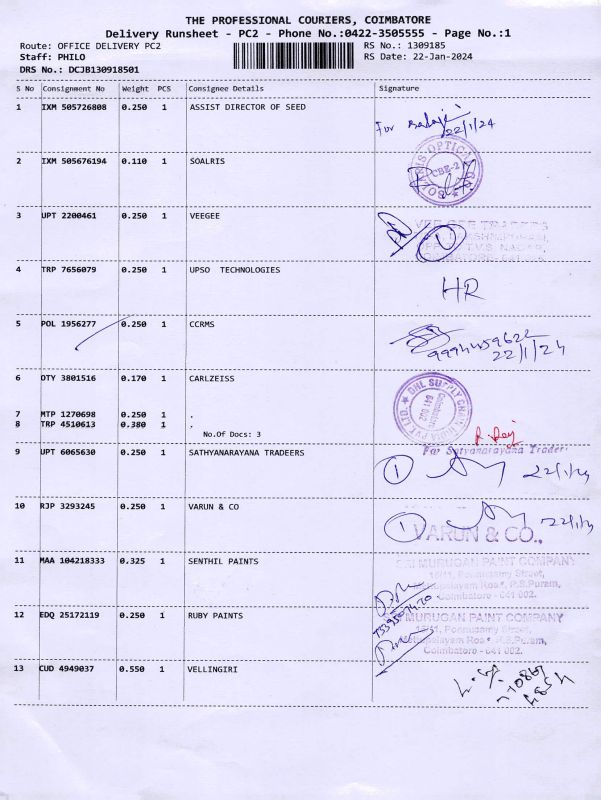 THE PROFESSIONAL COURIERS, COIMBATORE
Delivery Runsheet - PC2 - Phone No.:0422-3505555 - Page No.:1
Route: OFFICE DELIVERY PC2 RS No.: 1309185
Staff: PHILO RS Date: 22-Jan-2024
DRS No.: DCJB130918501
S No Consignment No Weight PCS Consignee Details Signature
1 IXM 505726808 0.250 1 ASSIST DIRECTOR OF SEED
For Balaji
22/1/24
2 IXM 505676194 0.110 1 SOALRIS
CBE-2
3 UPT 2200461 0.250 1 VEEGEE
VEE GEE TRADERS
1
T.V.S. NAGAR,
4 TRP 7656079 0.250 1 UPSO TECHNOLOGIES
HR
5 POL 1956277 0.250 1 CCRMS
9994459622
22/1/24
6 OTY 3801516 0.170 1 CARLZEISS
DHL SUPPLY CHAIN INDIA PVT LTD.
Coimbatore
641 002
7 MTP 1270698 0.250 1 .
8 TRP 4510613 0.380 1 .
No.Of Docs: 3
9 UPT 6065630 0.250 1 SATHYANARAYANA TRADEERS
For Satyanarayana Traders
1 22/1/24
10 RJP 3293245 0.250 1 VARUN & CO
1 22/1/24
VARUN & CO.,
11 MAA 104218333 0.325 1 SENTHIL PAINTS
SRI MURUGAN PAINT COMPANY
16/11, Ponnusamy Street,
R.S.Puram,
Coimbatore - 641 002.
12 EDQ 25172119 0.250 1 RUBY PAINTS
MURUGAN PAINT COMPANY
16/11, Ponnusamy Street,
R.S.Puram,
Coimbatore - 641 002.
13 CUD 4949037 0.550 1 VELLINGIRI